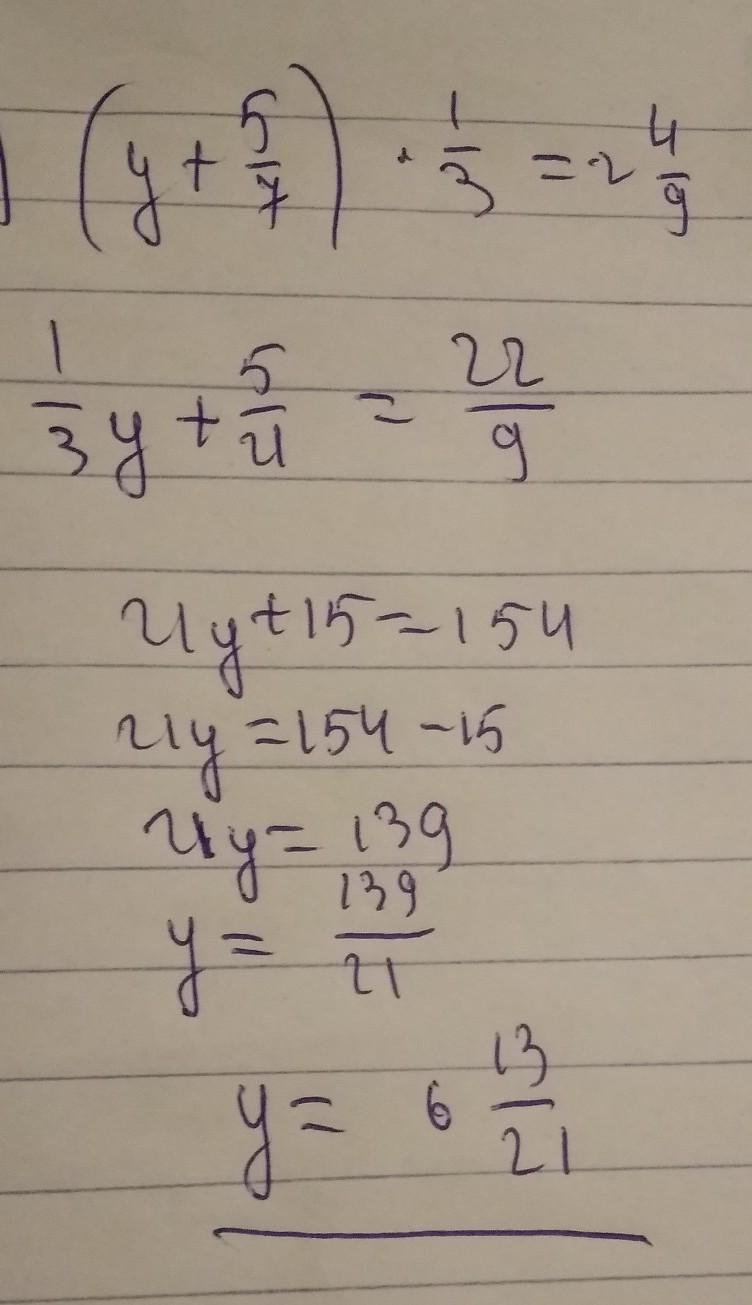 (y + 5/7) · 1/3 = 2 4/9
1/3 y + 5/21 = 22/9
21y + 15 = 154
21y = 154 - 15
21y = 139
y = 139/21
y = 6 13/21